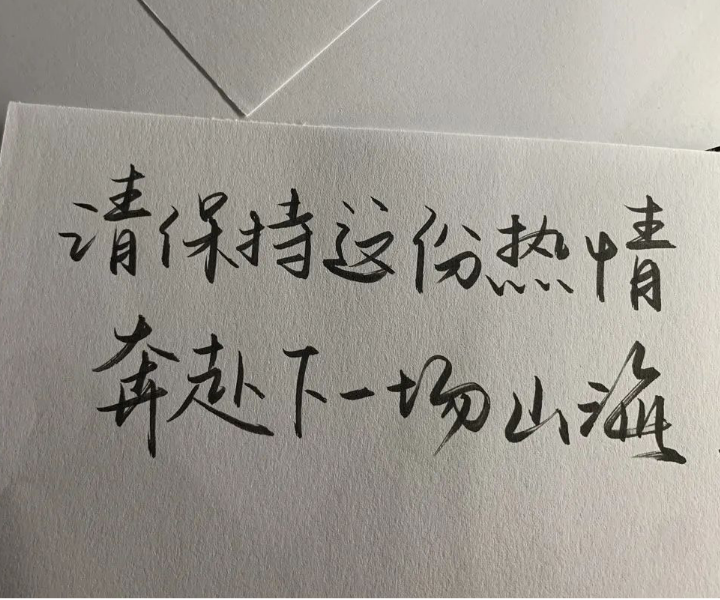 请保持这份热情
奔赴下一场山海